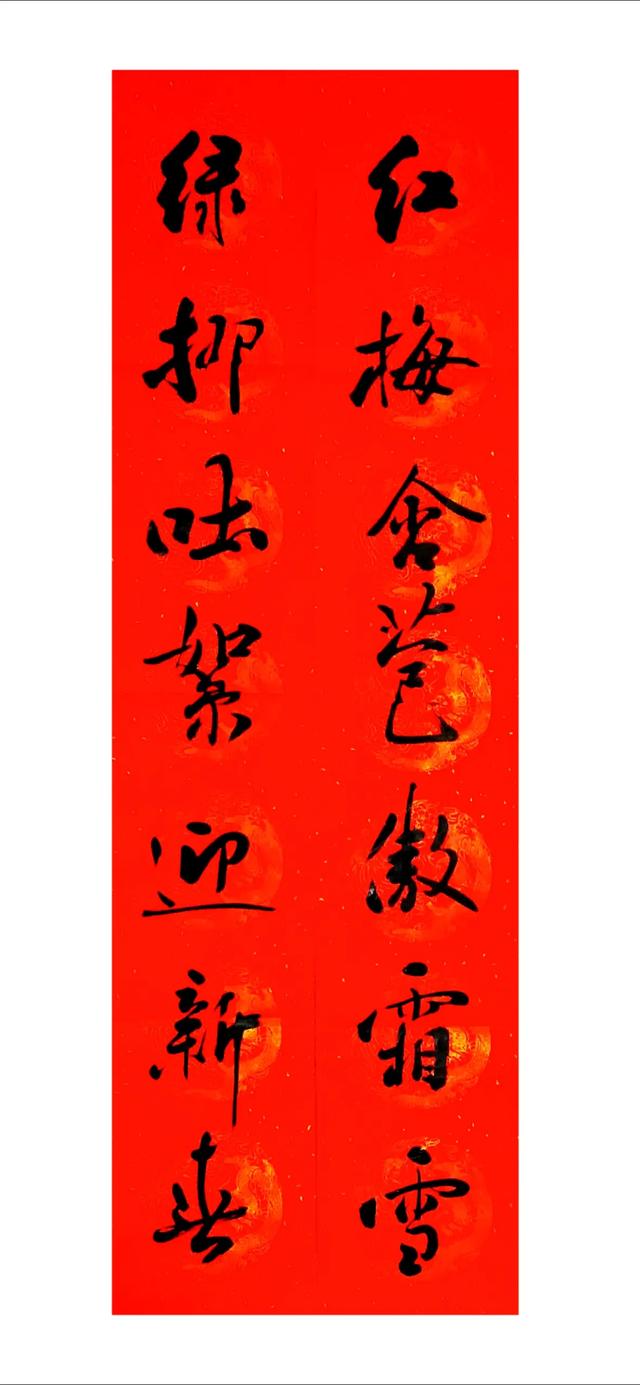 红梅含苞傲霜雪
绿柳吐絮迎新春